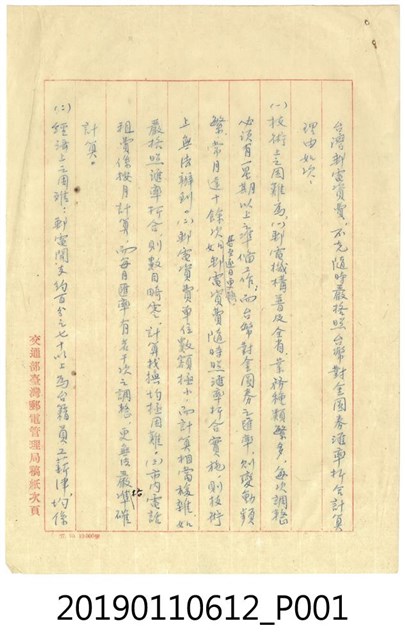 台灣郵電資費,不克隨時嚴格照台幣對金圓券滙率折合計算
理由如次:
(一)技術上之困難為:(1)郵電機構普及全省,業務種類繁多,每次調整
必須有一星期以上準備工作,而台幣對金圓券之滙率,則變動頻
繁,常月達十餘次,如郵電資費隨時照滙率折合實施,則技術
上無法辦到。(2)郵電資費單位數額極小,而計算相當複雜,如
嚴格照滙率折合,則數目畸零,計算找換均極困難。(3)市內電話
租費係按月計算,而每月滙率有若干次之調整,更無法嚴準確
計算。
(二)經濟上之困難:郵電開支約百分之七十以上為台籍員工薪津,均係
交通部臺灣郵電管理局稿紙次頁
20190110612_P001